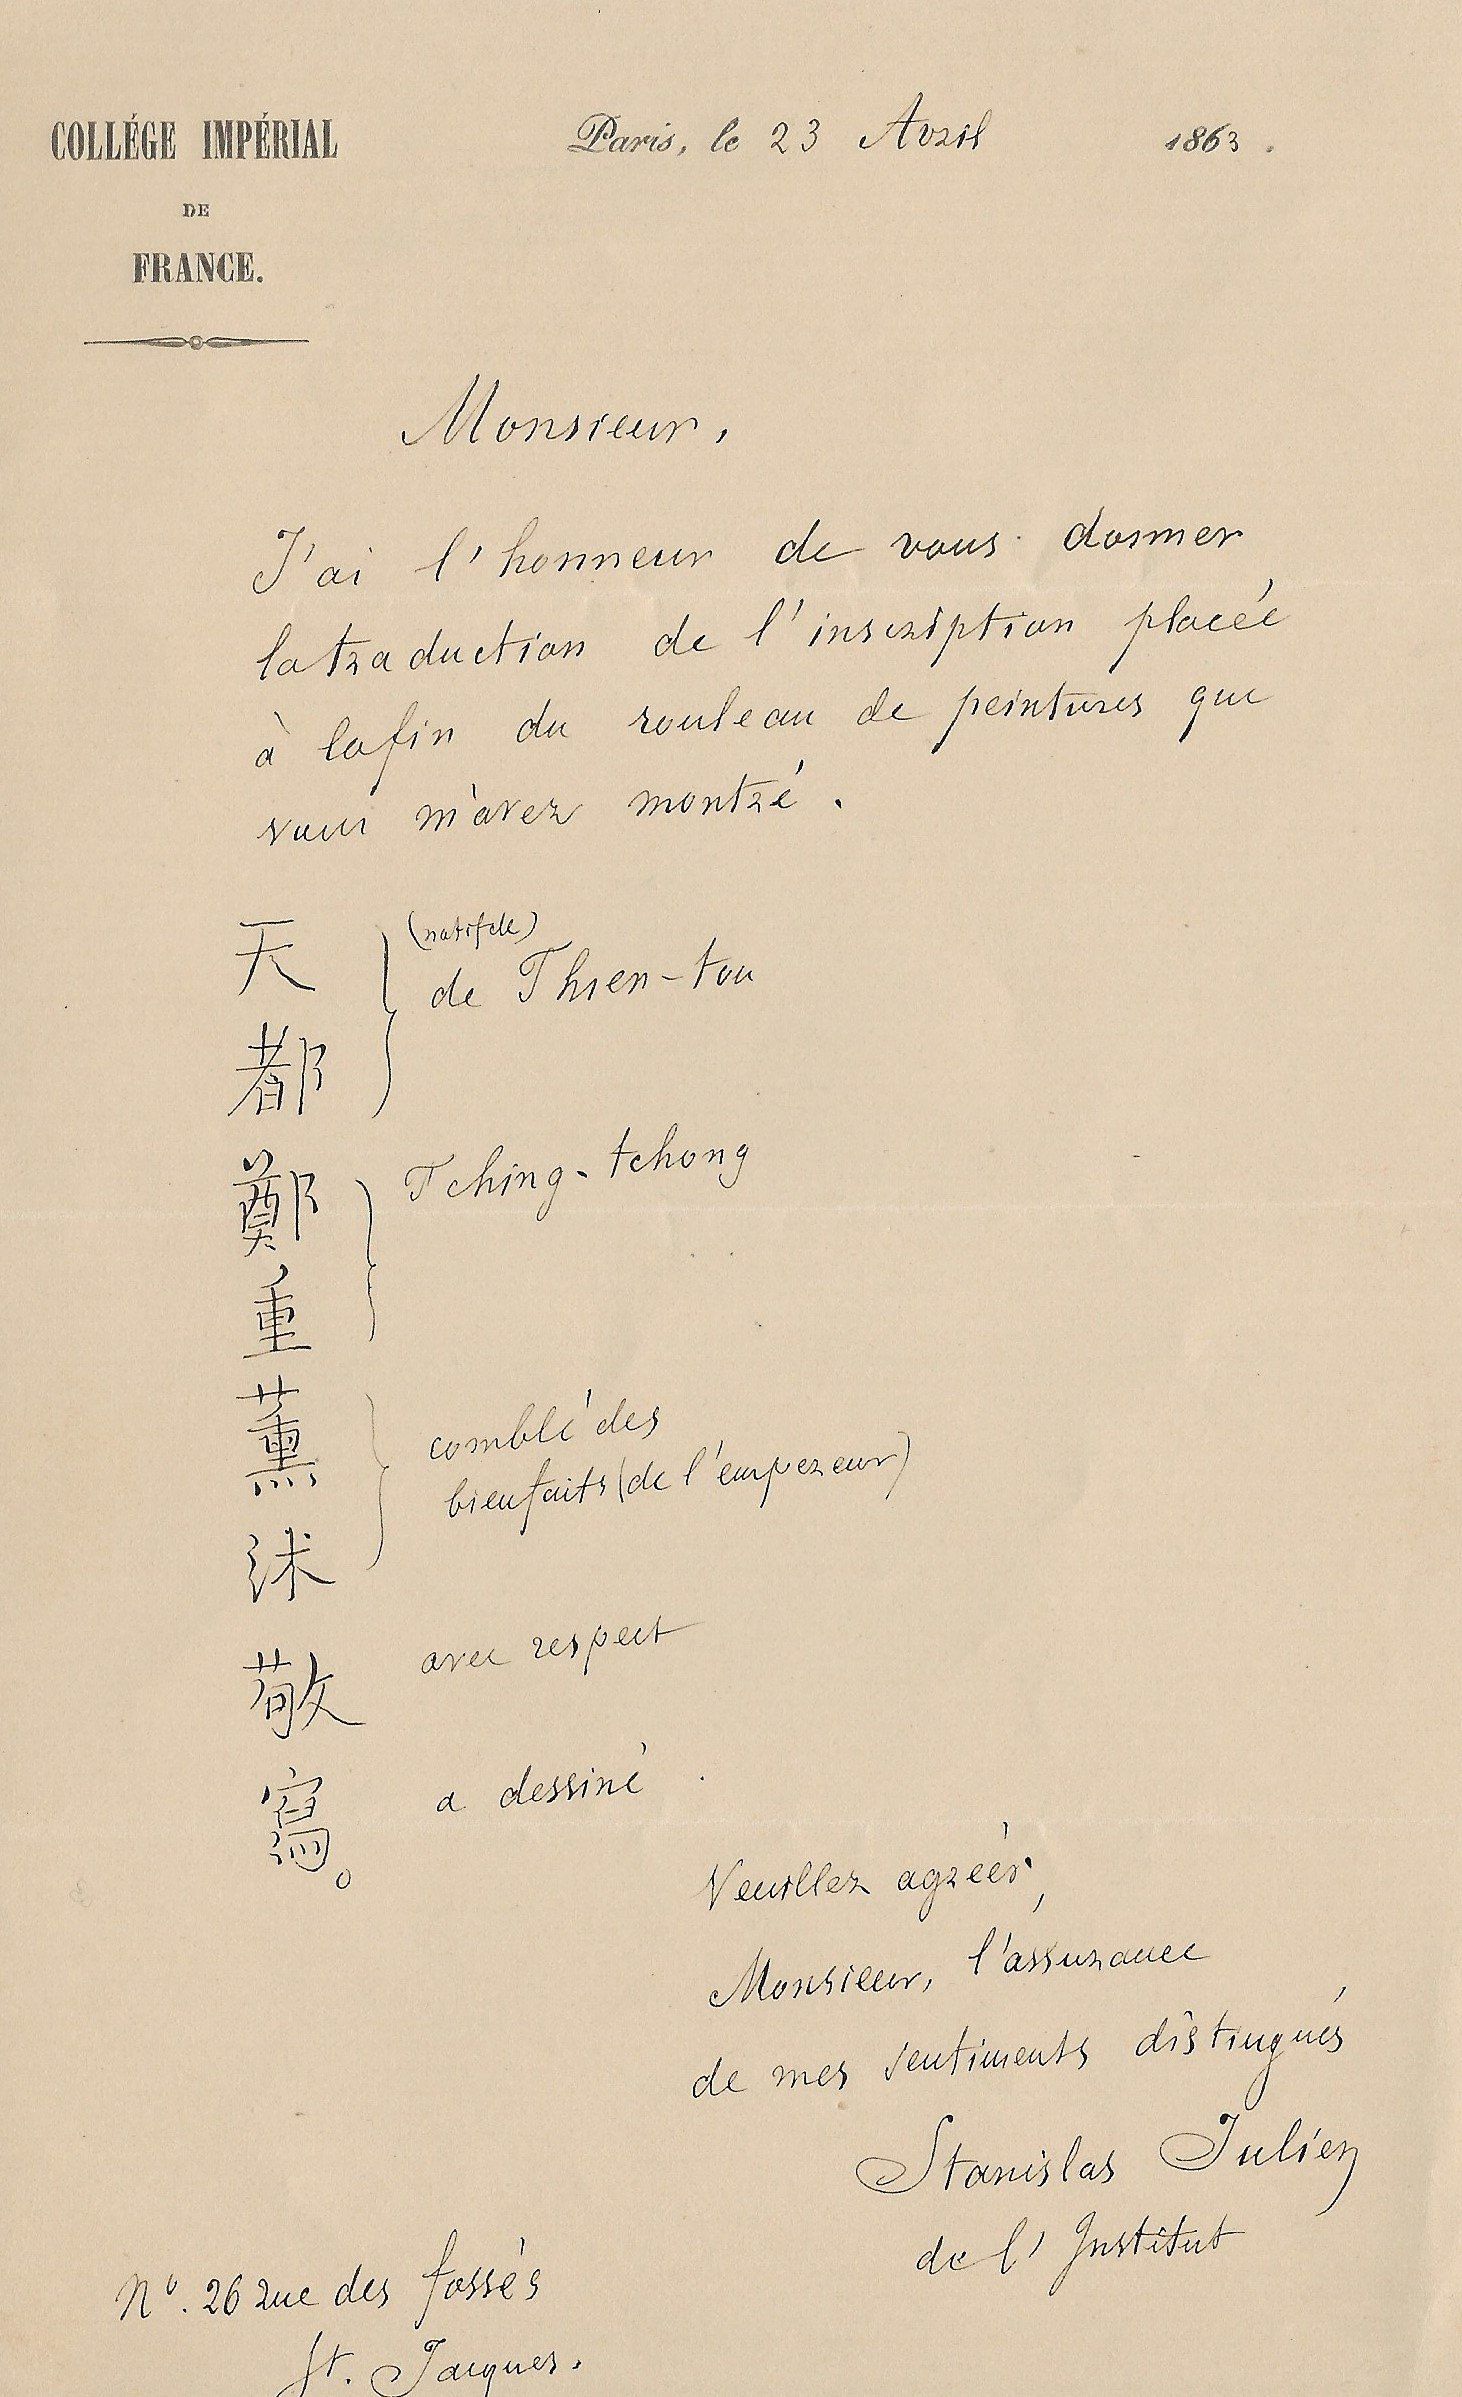 COLLÉGE IMPÉRIAL
DE
FRANCE.
Paris, le 23 Avril 1863.
Monsieur,
J'ai l'honneur de vous donner
la traduction de l'inscription placée
à la fin du rouleau de peintures que
vous m'avez montré.
天都 (natif de)
de Thien-tou
鄭重 Tching-tchong
薰沐 comblé des
bienfaits (de l'empereur)
敬 avec respect
寫。 a dessiné
Veuillez agréer,
Monsieur, l'assurance
de mes sentiments distingués
Stanislas Julien
de l'Institut
N°. 26 rue des fossés
St. Jacques.